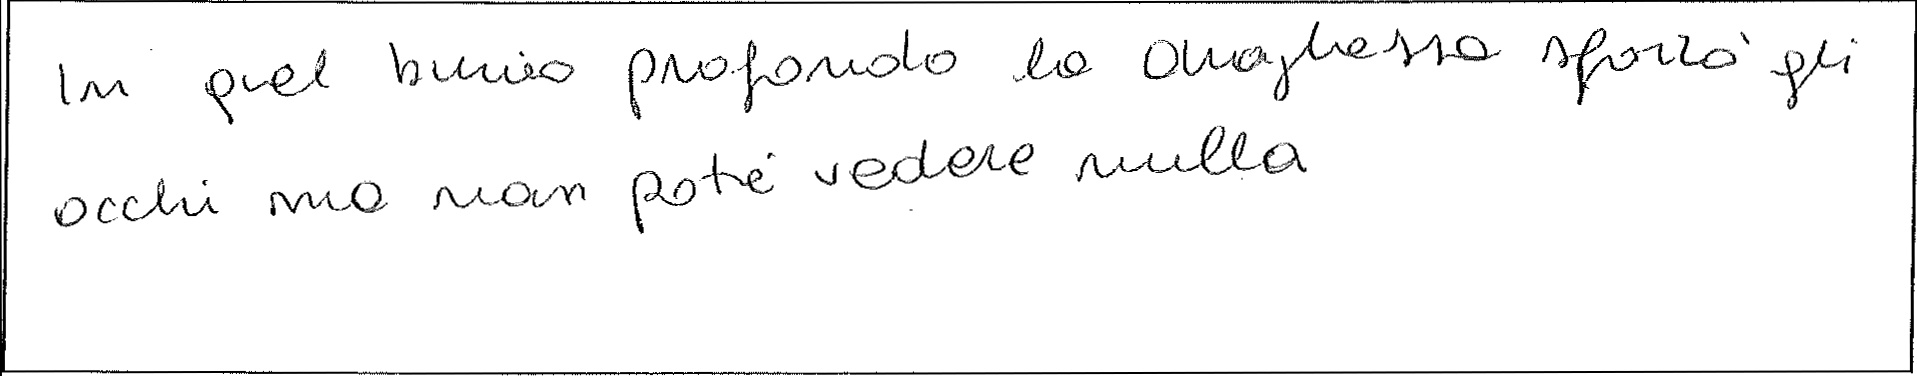 In quel buio profondo la Draghessa sforzò gli
occhi ma non poté vedere nulla